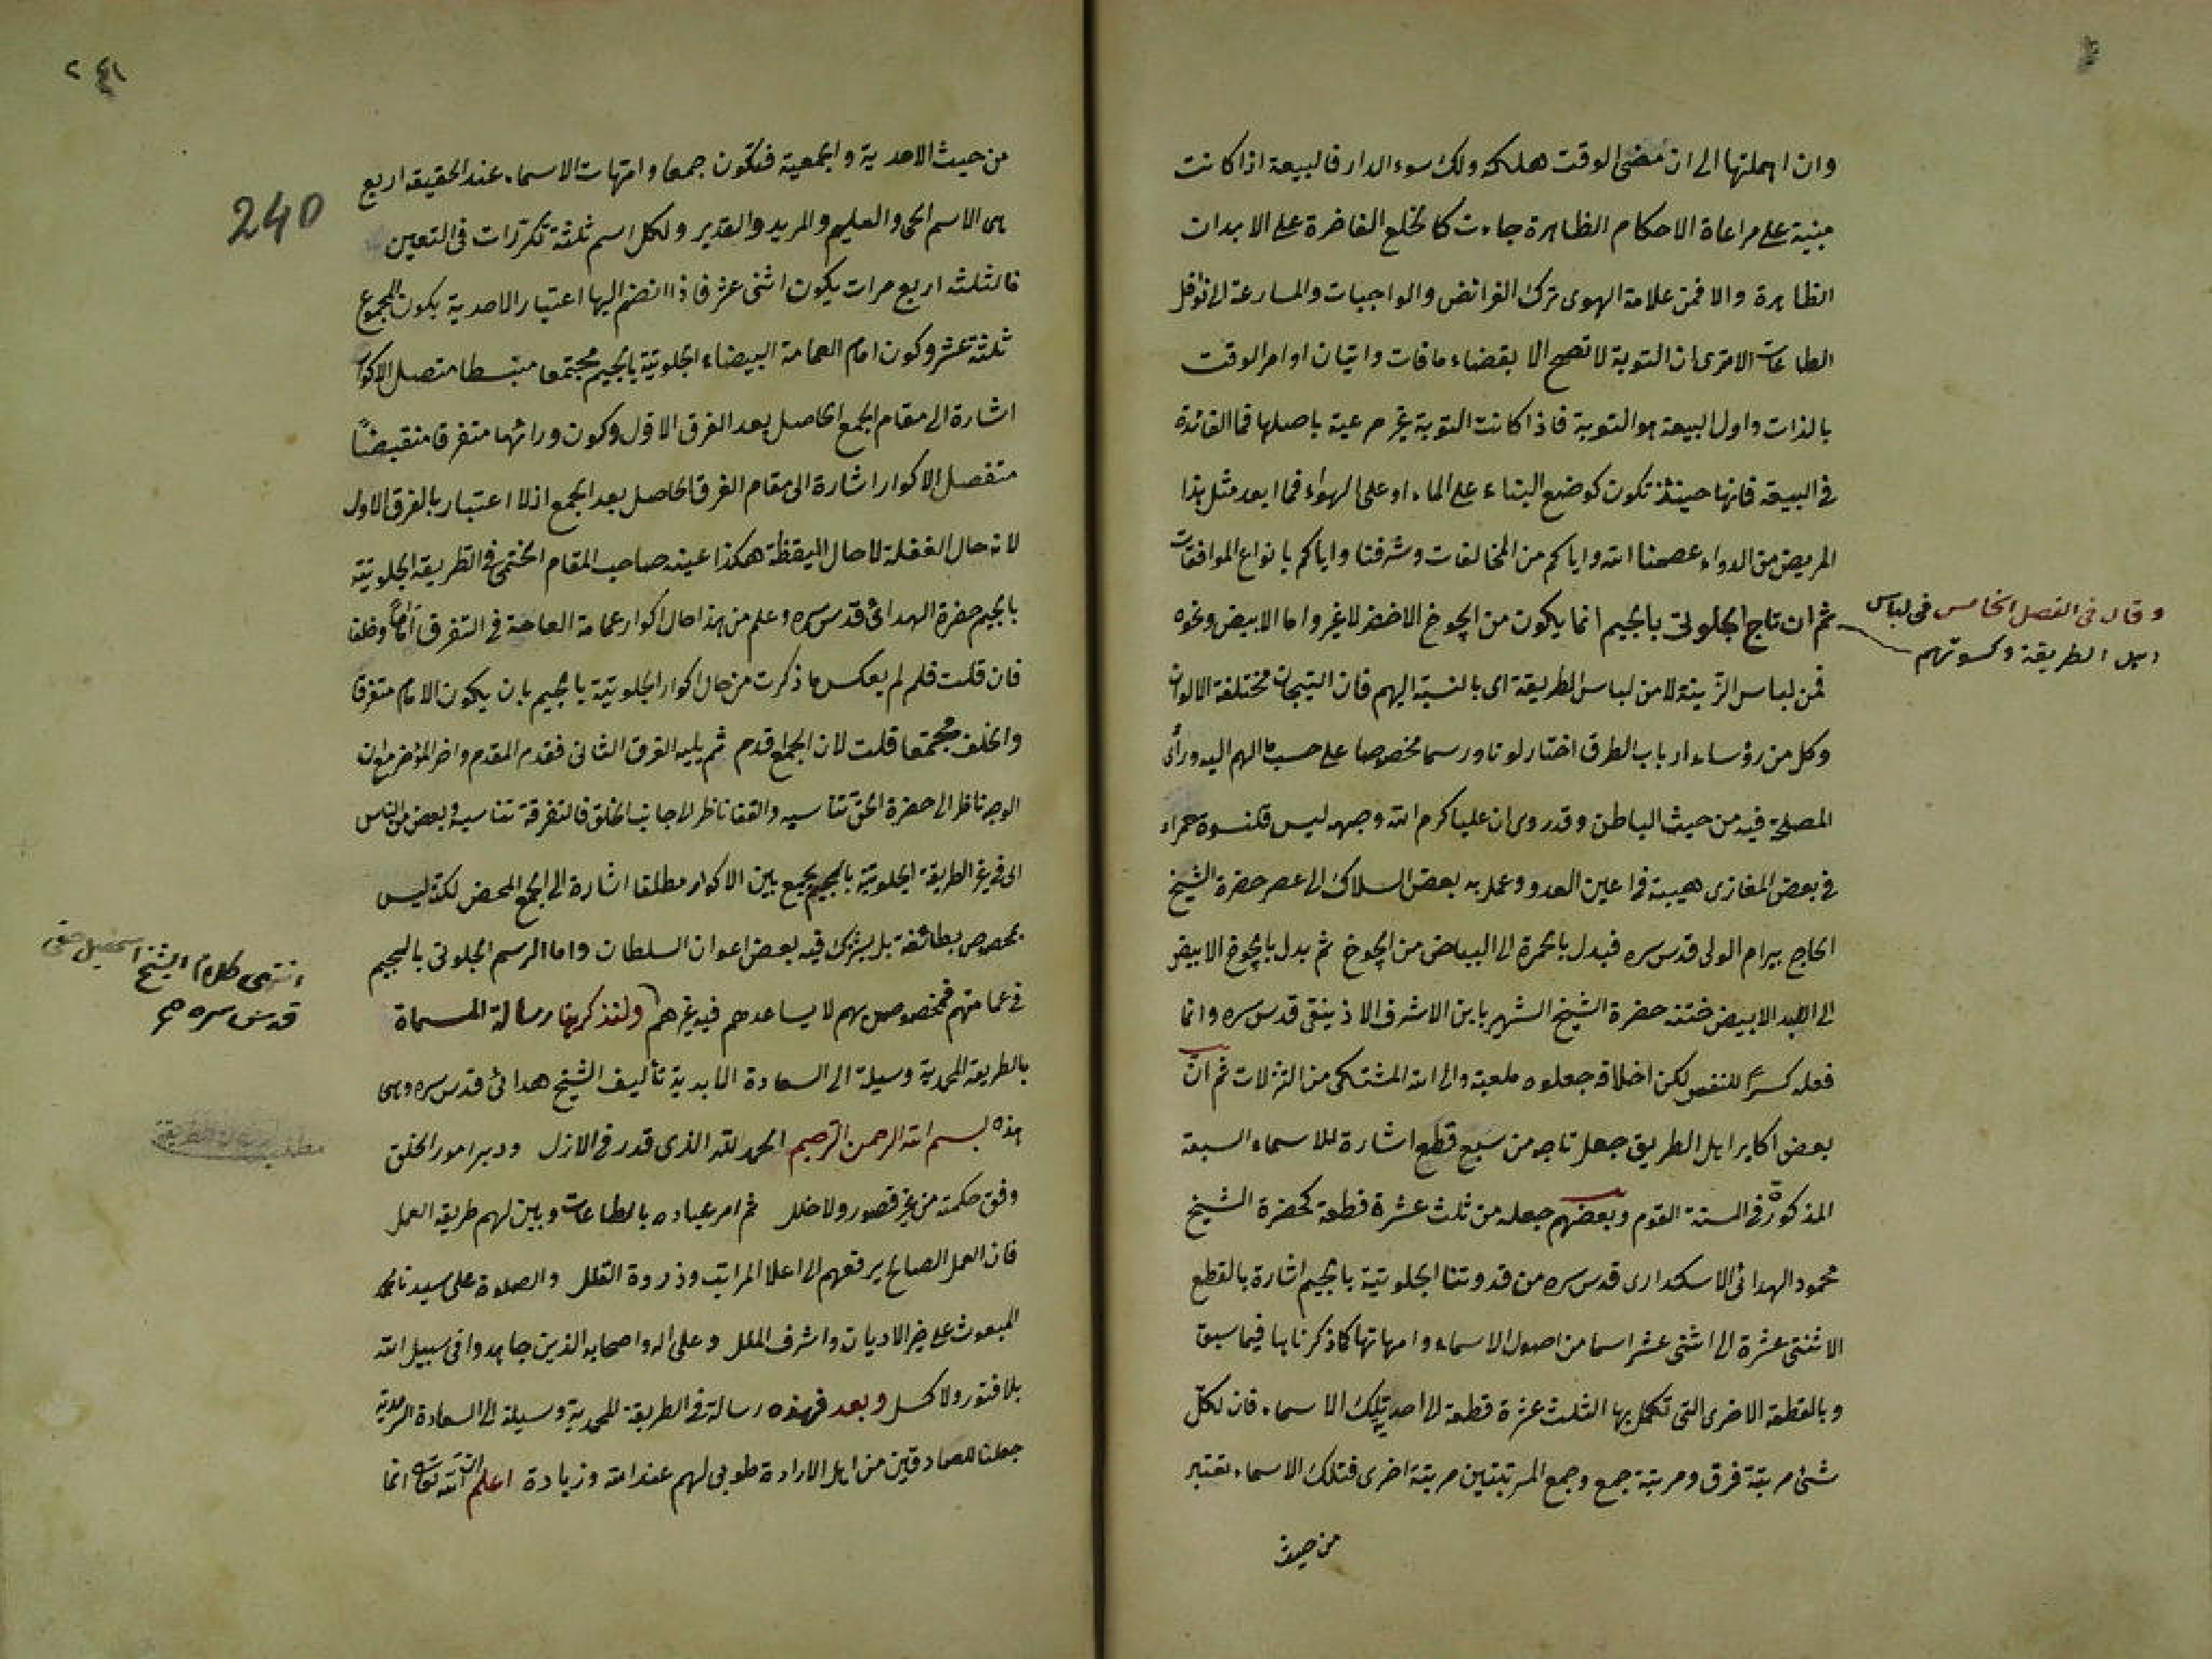 وان اهملتها الى ان مضى الوقت هلكه ولك سوء الدار فالبيعة اذا كانت
مبنية على مراعاة الاحكام الظاهرة جاءت كالخلع الفاخرة على الابدان
الظاهرة والا فمن علامة الهوى ترك الفرائض والواجبات والمسارعة الى نوافل
الطاعات الا ترى ان التوبة لا تصح الا بقضاء ما فات واتيان اوامر الوقت
بالذات واول البيعة هو التوبة فاذا كانت التوبة غير مرعية باصلها فما الفائدة
فى البيعة فانها حينئذ تكون كوضع البناء على الماء او على الهواء فما ابعد مثل هذا
المريض من الدواء عصمنا الله واياكم من المخالفات وشرفنا واياكم بانواع الموافقات
وقال فى الفصل الخامس فى لباس
اهل الطريقة وكسوتهم
ثم ان تاج الجلوتى بالجيم انما يكون من الجوخ الاخضر لا غير واما الابيض ونحوه
فمن لباس الزينة لا من لباس الطريقة اى بالنسبة اليهم فان التيجان مختلفة الالوان
وكل من رؤساء ارباب الطرق اختار لونا ورسما مخصوصا على حسب ما الهم اليه ورأى
المصلحة فيه من حيث الباطن وقد روى ان عليا كرم الله وجهه لبس قلنسوة حمراء
فى بعض المغازى هيبة فى اعين العدو وعمل به بعض السلاك الى عصر حضرة الشيخ
الحاج بيرام الولى قدس سره فبدل بالحمرة الى البياض من الجوخ ثم بدل بالجوخ الابيض
الى اللبد الابيض ختنه حضرة الشيخ الشهير بابن الاشرف الازنيقى قدس سره وانما
فعله كسرًا للنفس لكن اخلافه جعلوه ملعبة والى الله المشتكى من التنزلات ثم ان
بعض اكابر اهل الطريق جعل تاجه من سبع قطع اشارة للاسماء السبعة
المذكورة فى السنة القوم وبعضهم جعله من ثلث عشرة قطعة كحضرة الشيخ
محمود الهدائى الاسكدارى قدس سره من قدوتنا الجلوتية بالجيم اشارة بالقطع
الاثنتى عشرة الى اثنى عشر اسما من اصول الاسماء وامهاتها كما ذكرناها فيما سبق
وبالقطعة الاخرى التى تكمل بها الثلث عشرة قطعة الى احدية تلك الاسماء فان لكل
شئ مرتبة فرق ومرتبة جمع وجمع المرتبتين مرتبة اخرى فتلك الاسماء تعتبر
من حيث
٢٤١
240
من حيث الاحدية والجمعية فتكون جمعا وامهات الاسماء عند الحقيقة اربع
هى الاسم الحى والعليم والمريد والقدير ولكل اسم ثلثة تكررات فى التعين
فالثلثة اربع مرات يكون اثنى عشر فاذا انضم اليها اعتبار الاحدية يكون المجموع
ثلثة عشر وكون امام العمامة البيضاء الجلوتية بالجيم مجتمعا منبسطا متصل الاكوار
اشارة الى مقام الجمع الحاصل بعد الفرق الاول وكون ورائها متفرقا منقبضًا
متفصل الاكوار اشارة الى مقام الفرق الحاصل بعد الجمع اذ لا اعتبار بالفرق الاول
لانه حال الغفلة لا حال اليقظة هكذا عينه صاحب المقام الختمى فى الطريقة الجلوتية
بالجيم حضرة الهدائى قدس سره وعلم من هذا حال اكوار عمامة العامة فى التفرق امامًا وخلفا
فان قلت فلم لم يعكس ما ذكرت من حال اكوار الجلوتية بالجيم بان يكون الامام متفرقا
والخلف مجتمعا قلت لان الجمع اقدم ثم يليه الفرق الثانى فقدم المقدم واخر المؤخر مع ان
الوجه ناظر الى حضرة الحق تناسبه والقفا ناظر الى جانب الخلق فالتفرقة تناسبه وبعض من الناس
اى فى غير الطريقة الجلوتية بالجيم يجمع بين الاكوار مطلقا اشارة الى الجمع المحض لكنه ليس
بمخصوص بطائفة بل يشترك فيه بعض اعوان السلطان واما الرسم الجلوتى بالجيم
فى عمامتهم فمخصوص بهم لا يساعدهم فيه غيرهم ولنذكر هنا رسالة المسماة
انتهى كلام الشيخ اسمعيل حقى
قدس سره
بالطريقة المحمدية وسيلة الى السعادة الابدية تأليف الشيخ هدائى قدس سره وهى
هذه بسم الله الرحمن الرحيم الحمد لله الذى قدر فى الازل ودبر امور الخلق
وفق حكمته من غير قصور ولا خلل ثم امر عباده بالطاعات وبين لهم طريقة العمل
فان العمل الصالح يرفعهم الى اعلا المراتب وذروة القلل والصلوة على سيدنا محمد
المبعوث على خير الاديان واشرف الملل وعلى اله واصحابه الذين جاهدوا فى سبيل الله
بلا فتور ولا كسل وبعد فهذه رسالة فى الطريقة المحمدية وسيلة الى السعادة السرمدية
جعلنا للصادقين من اهل الارادة طوبى لهم عند الله وزيادة اعلم ان الله تعالى انما